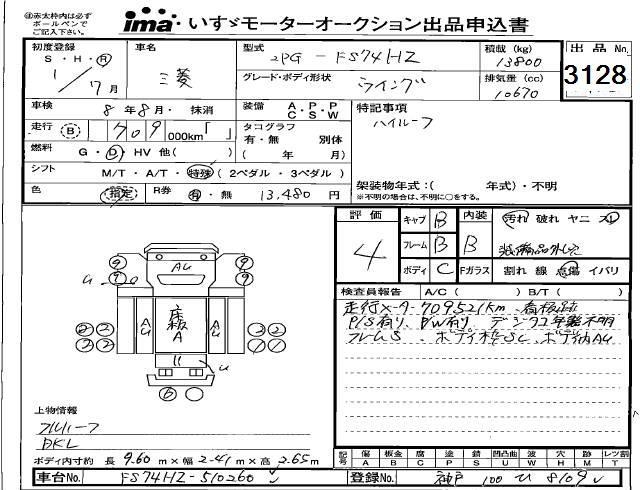 注赤太枠内は必ず
ボールペンで
ご記入下さい。
ima いすゞモーターオークション出品申込書
初度登録
S・H・R
1/7月
車名
三菱
型式
2PG-FS74HZ
積載(kg)
13800
グレード・ボディ形状
ウイング
排気量(cc)
10670
出品No.
3128
車検
8年8月・抹消
装備
A・P・P
C・S・W
特記事項
ハイルーフ
走行 B 709 000km「 」
タコグラフ
有・無 別体
( 年 月)
燃料 G・D・HV 他( )
シフト M/T・A/T・特殊(2ペダル・3ペダル)
色 指定 R券 有・無 13,480円
架装物年式:( 年式)・不明
※不明の場合は、不明に○をする。
評価
4
キャブ B
フレーム B
ボディ C
内装
B
Fガラス
汚れ 破れ ヤニ スレ
割れ 線 点傷 イバリ
検査員報告 A/C( ) B/T( )
走行メータ709521km 看板跡
P/S有り、P/W有り デジタコ年鑑不明
フレームS ボディ枠SC ボディ内AU
9 9 AU 9 9
u
2 2 2 2
2 2 1 1
AU 床板A AU
u
B
上物情報
ハイルーフ
PKL
ボディ内寸約 長 9.60m×幅 2.41m×高 2.65m
記号
傷 板金 腐 塗 凹凸曲 波 穴 跡 レツ割
A B C P S U W H M T
車台No. FS74HZ-510260
登録No. 神戸 100 ひ 8109